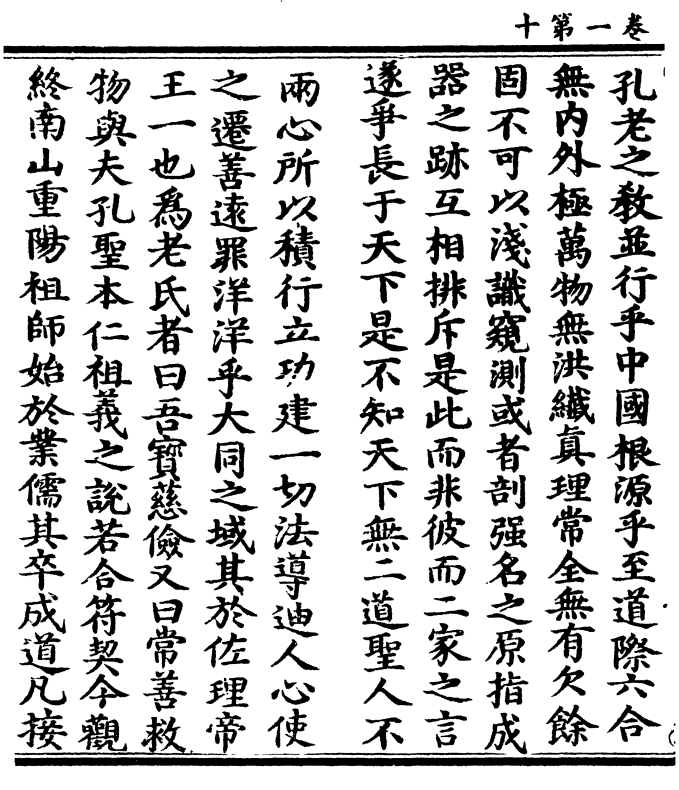 卷一第十
孔老之教並行乎中國根源乎至道際六合
無内外極萬物無洪纎真理常全無有欠餘
固不可以淺識窺測或者剖强名之原指成
器之跡互相排斥是此而非彼而二家之言
遂爭長于天下是不知天下無二道聖人不
兩心所以積行立功建一切法導迪人心使
之遷善遠罪洋洋乎大同之域其於佐理帝
王一也爲老氏者曰吾寳慈儉又曰常善救
物與夫孔聖本仁祖義之說若合符契今觀
終南山重陽祖師始於業儒其卒成道凡接